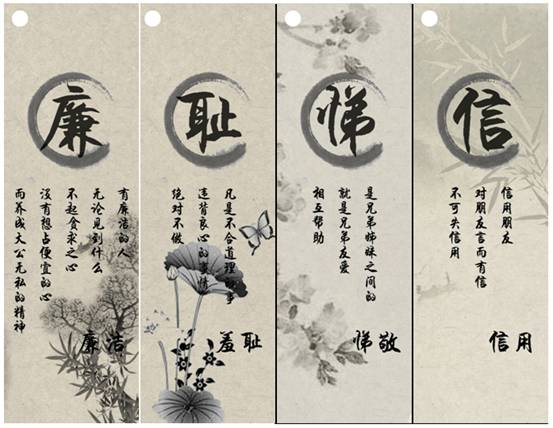 廉
有廉洁的人
无论见到什么
不起贪求之心
没有想占便宜的心
而养成大公无私的精神
廉洁
耻
凡是不合道理的事
违背良心的事情
绝对不做
羞耻
悌
是兄弟姊妹之间的
就是兄弟友爱
相互帮助
悌敬
信
信用朋友
对朋友言而有信
不可失信用
信用